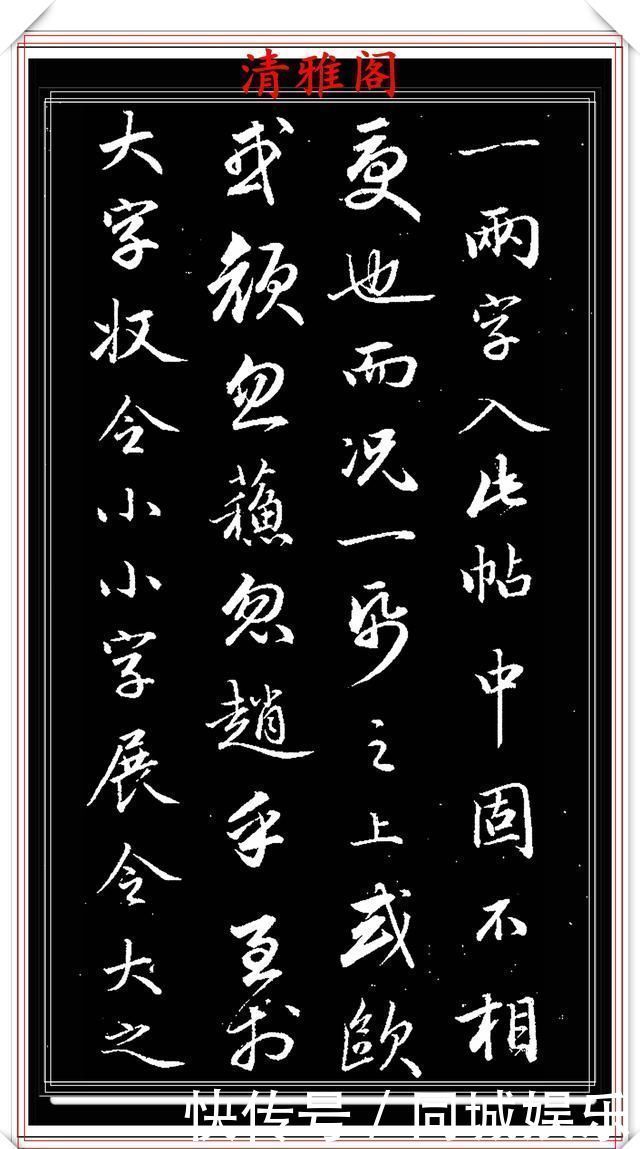 清雅阁
一兩字入此帖中固不相
更也而况一帋之上或歐
或顔忽忽蘓忽趙乎至於
大字収令小小字展令大之
快传号/同城娱乐